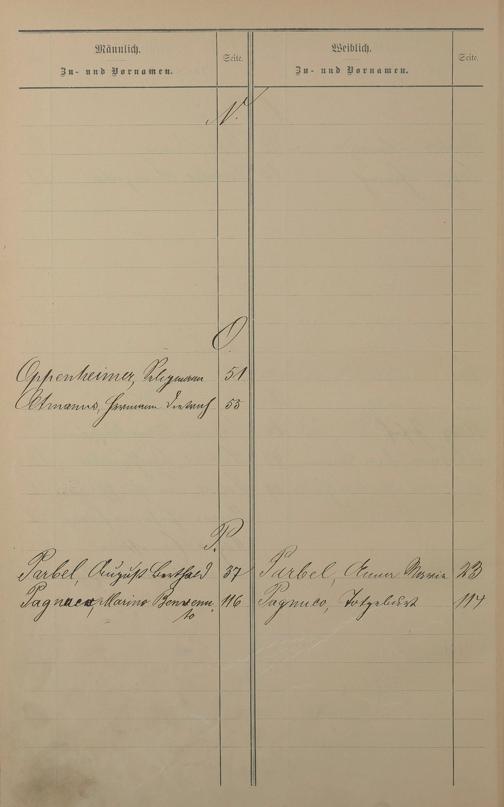 Männlich.
Zu- und Vornamen.
Seite.
Weiblich.
Zu- und Vornamen.
Seite.
N.
O.
Oppenheimer, Seligmann 51
Oltmanns, Hermann Dietrich 55
P.
Parbel, August Berthold 37
Parbel, Anna Marie 23
Pagnuco, Marino Benvenu- 116
to
Pagnuco, Totgeburt 114